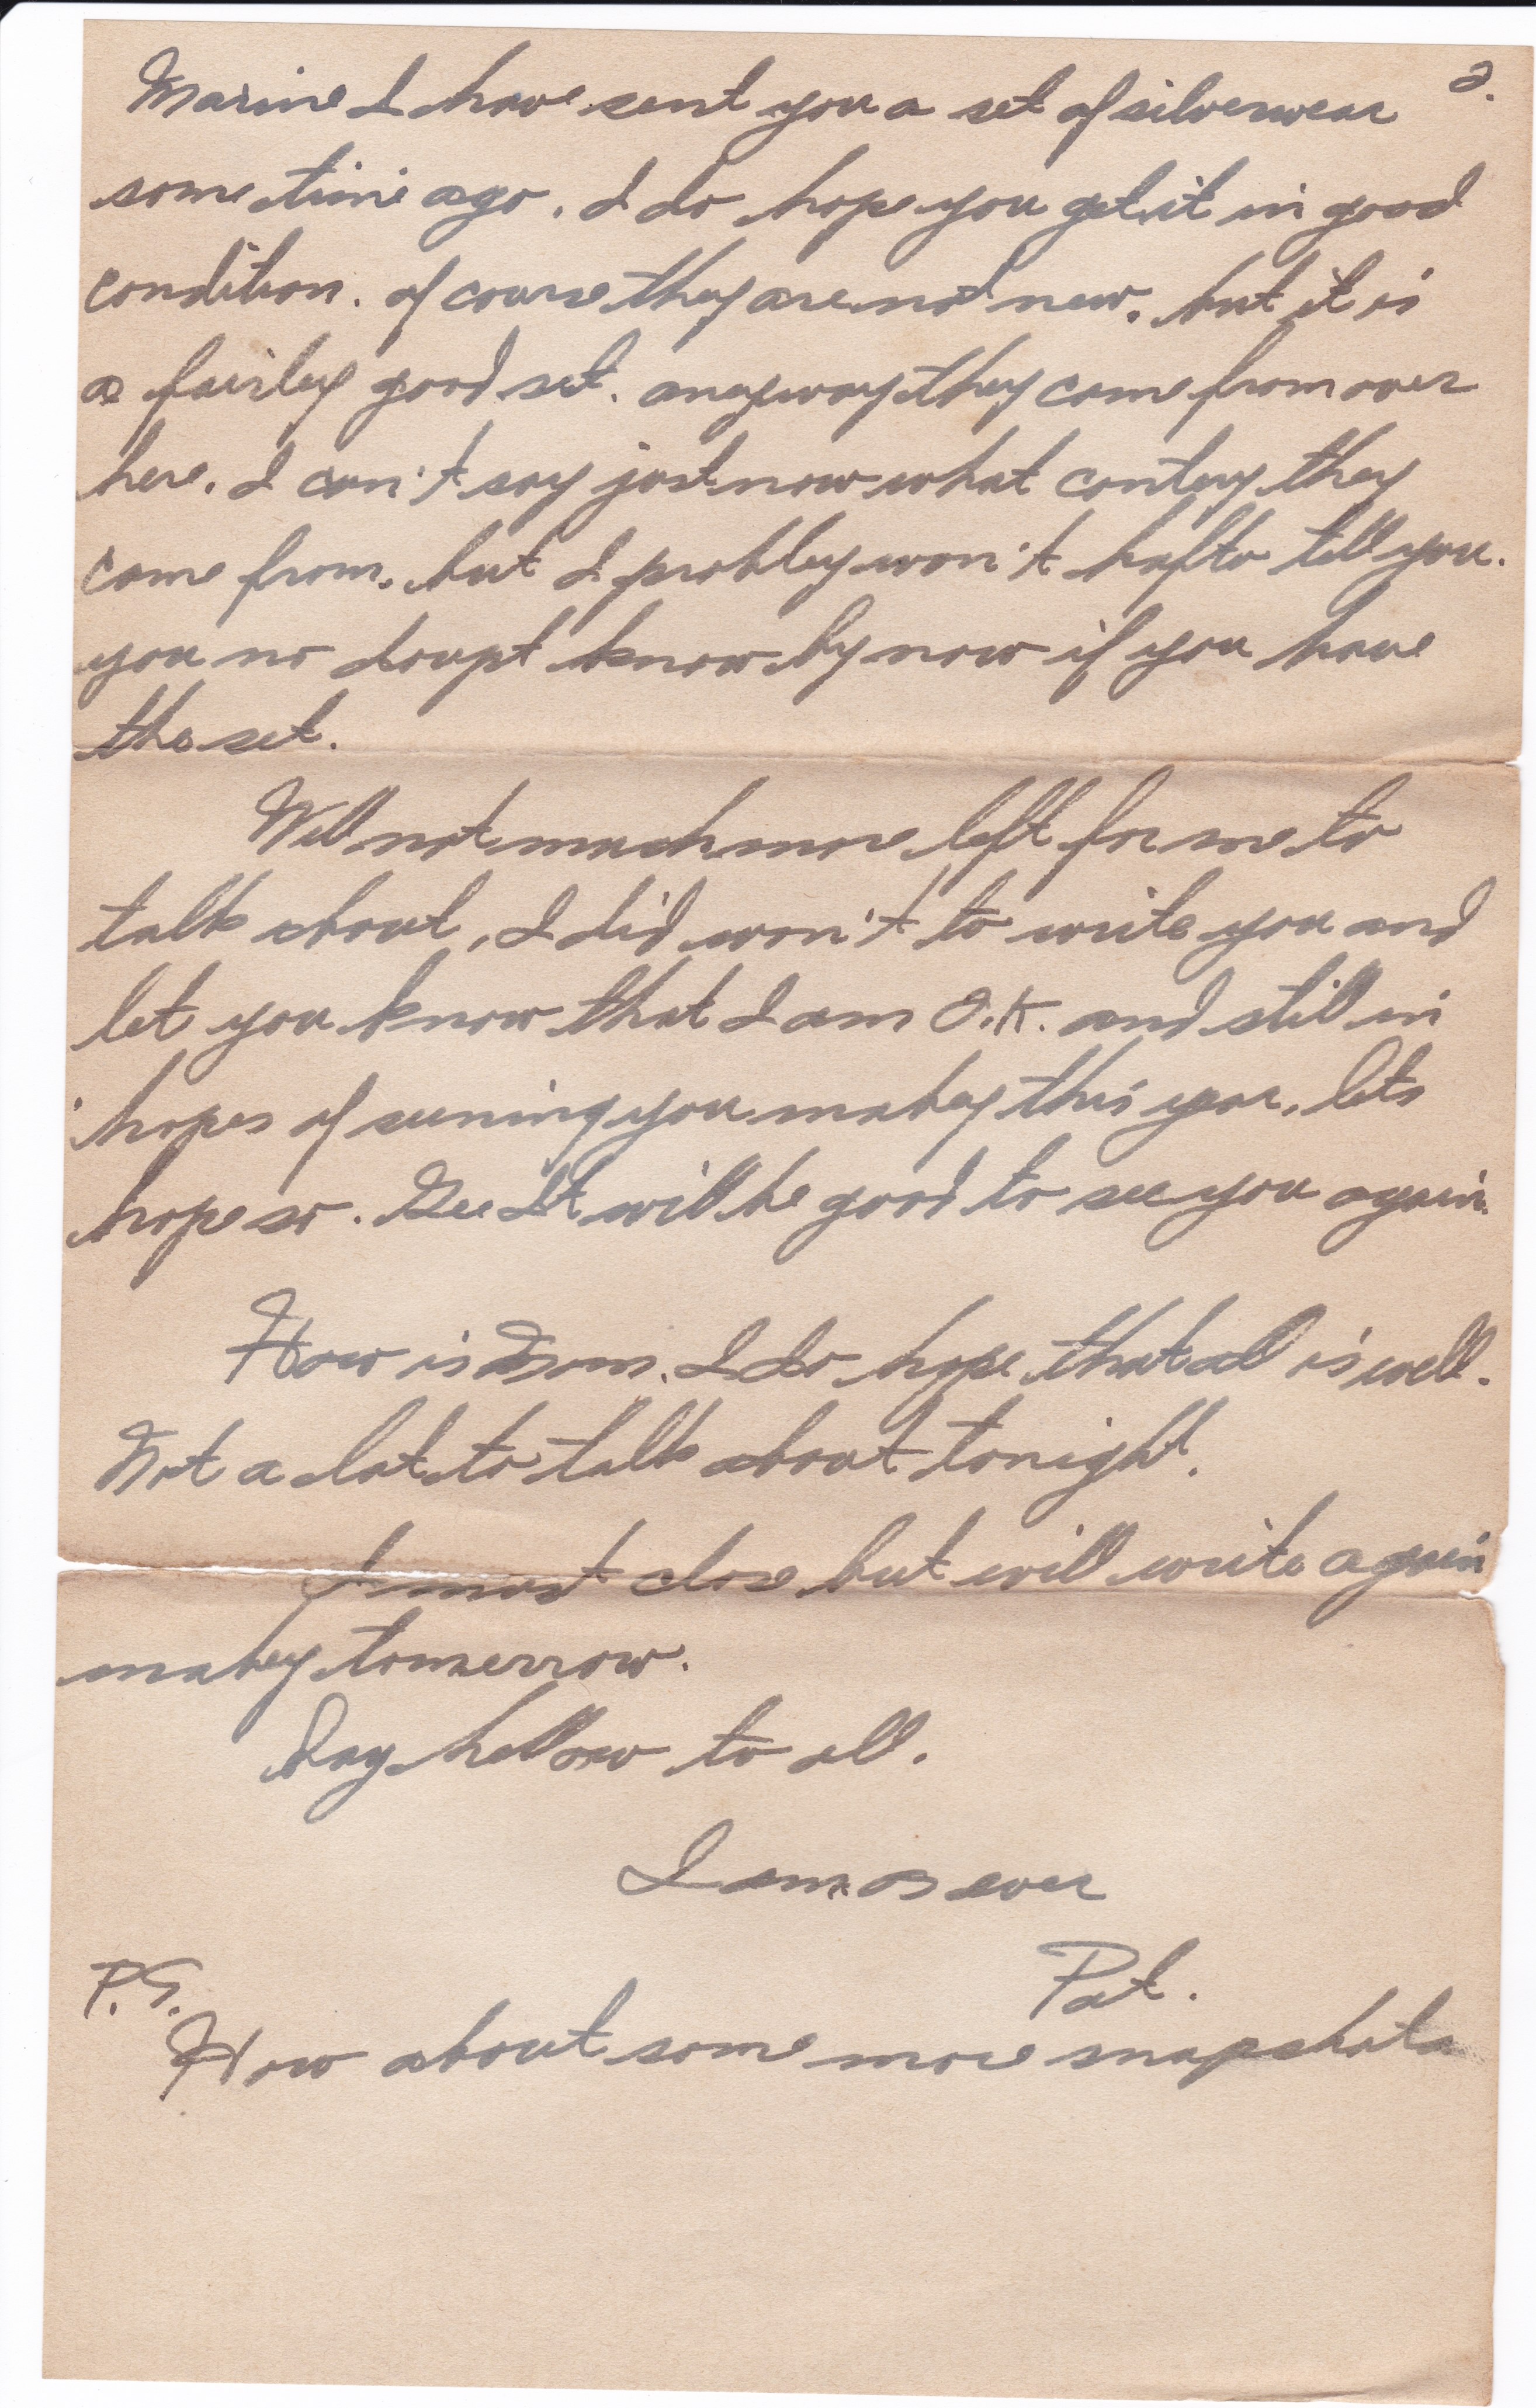 2.
Marine I have sent you a set of silverwear
some time ago. I do hope you get it in good
condition. of course they are not new. but it is
a fairley good set. anyway they come from over
here. I can't say just now what contey they
come from. but I probley won't hafto tell you.
you no doupt know by now if you have
the set.
Well not much more left for me to
talk about, I did won't to write you and
let you know that I am O.K. and still in
hopes of seening you mabey this year, lets
hope so. Gee It will be good to see you again.
How is Mom. I do hope that all is well.
Not a lot to talk about tonight.
I must close but will write again
mabey tomerrow.
Say hellow to all.
I am as ever
Pat.
P.S.
How about some more snapshots